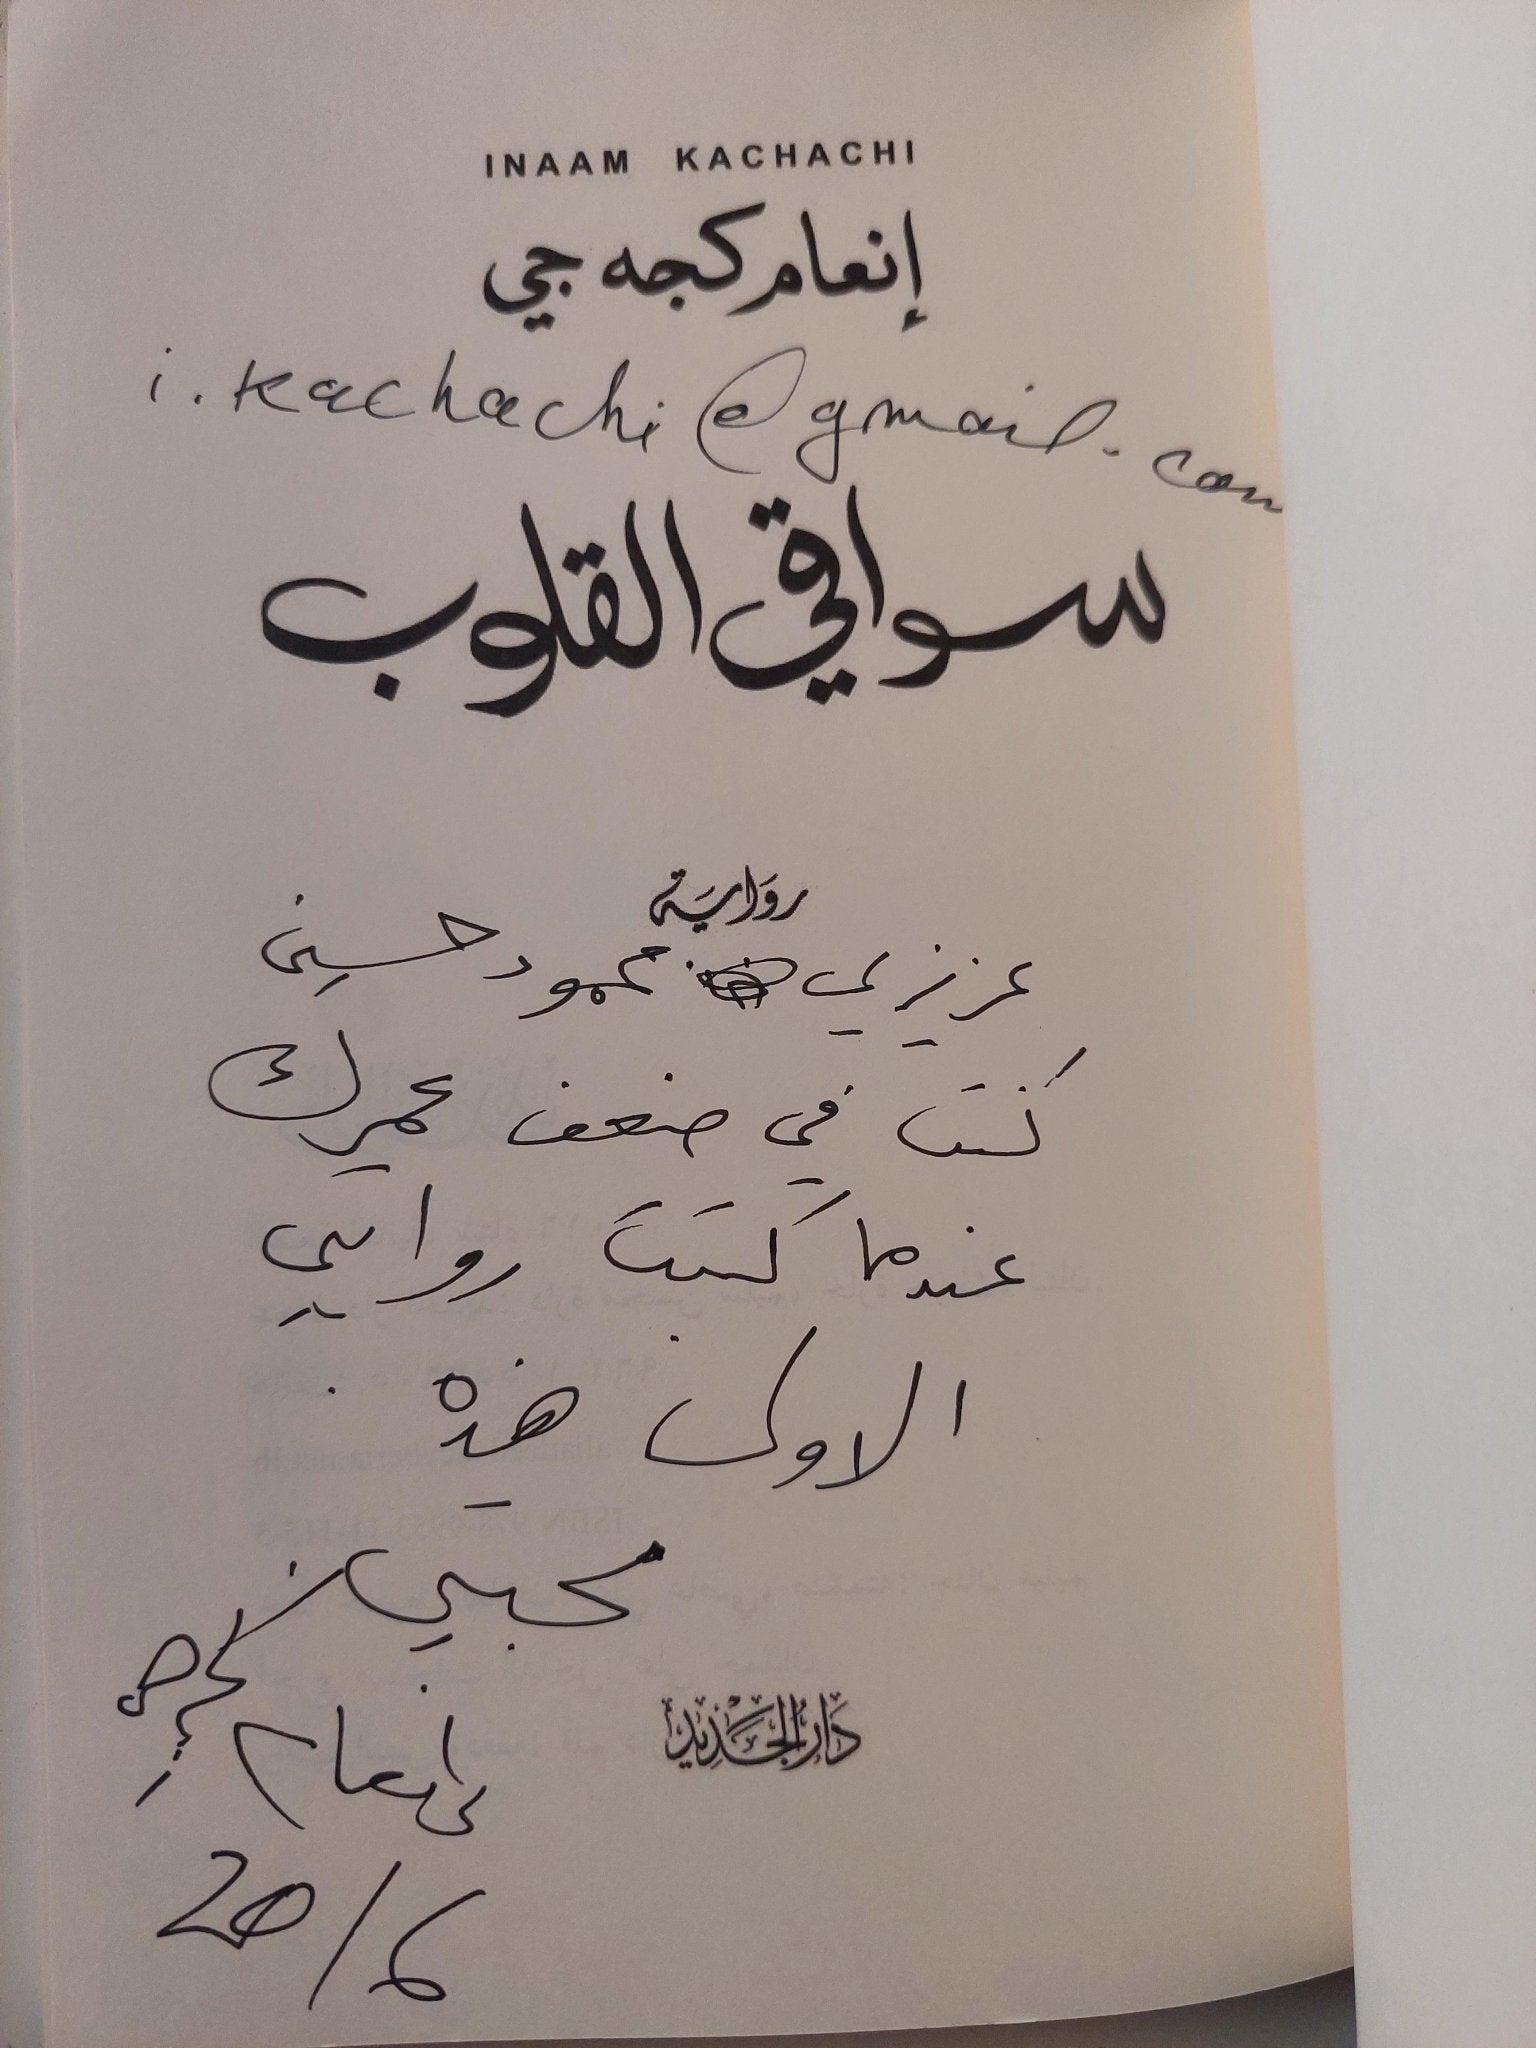 INAAM KACHACHI
إنعام كجه جي
i.kachachi@gmail.com
سواقي القلوب
رواية
عزيزي محمود حسين
كنت في ضعف عمرك
عندما كتبت روايتي
الاولى هذه.
محبتي
إنعام كجه جي
20/6
دار الجديد